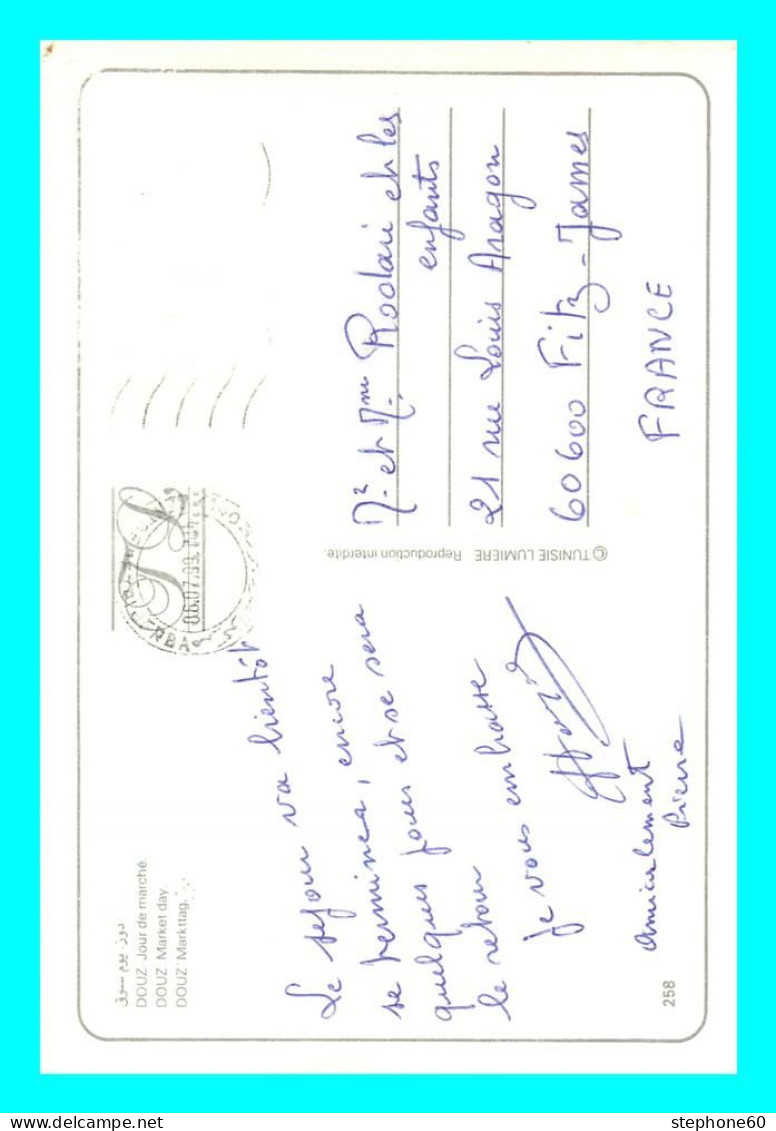 دوز. يوم سوق
DOUZ. Jour de marché.
DOUZ. Market day.
DOUZ. Markttag.
Le sejour va bientôt
se terminer, encore
quelques jours et se sera
le retour
je vous embrasse
Amicalement
Pierre
258
© TUNISIE LUMIERE Reproduction interdite.
06.07.99
RBA
Mr et Mme Rodari et les
enfants
21 rue Louis Aragon
60600 Fitz-James
FRANCE
stephone60